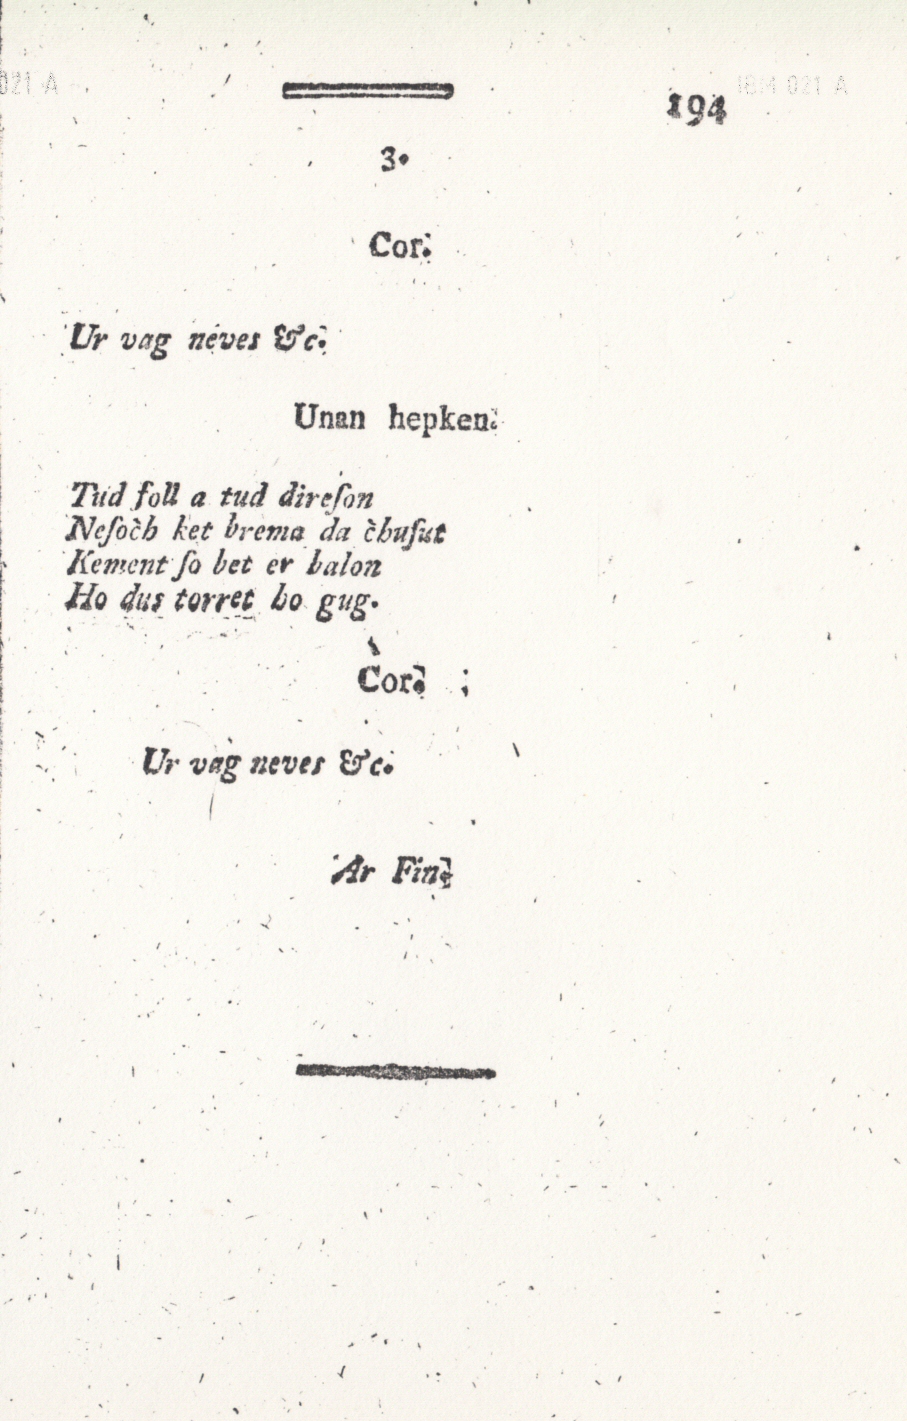 021 A
IBM 021 A
194
3.
Cor.
Ur vag neves &c.
Unan hepken.
Tud foll a tud direſon
Neſoc̀h ket brema da c̀huſut
Kement ſo bet er balon
Ho dus torret ho gug.
Cor.
Ur vag neves &c.
Ar Fin.